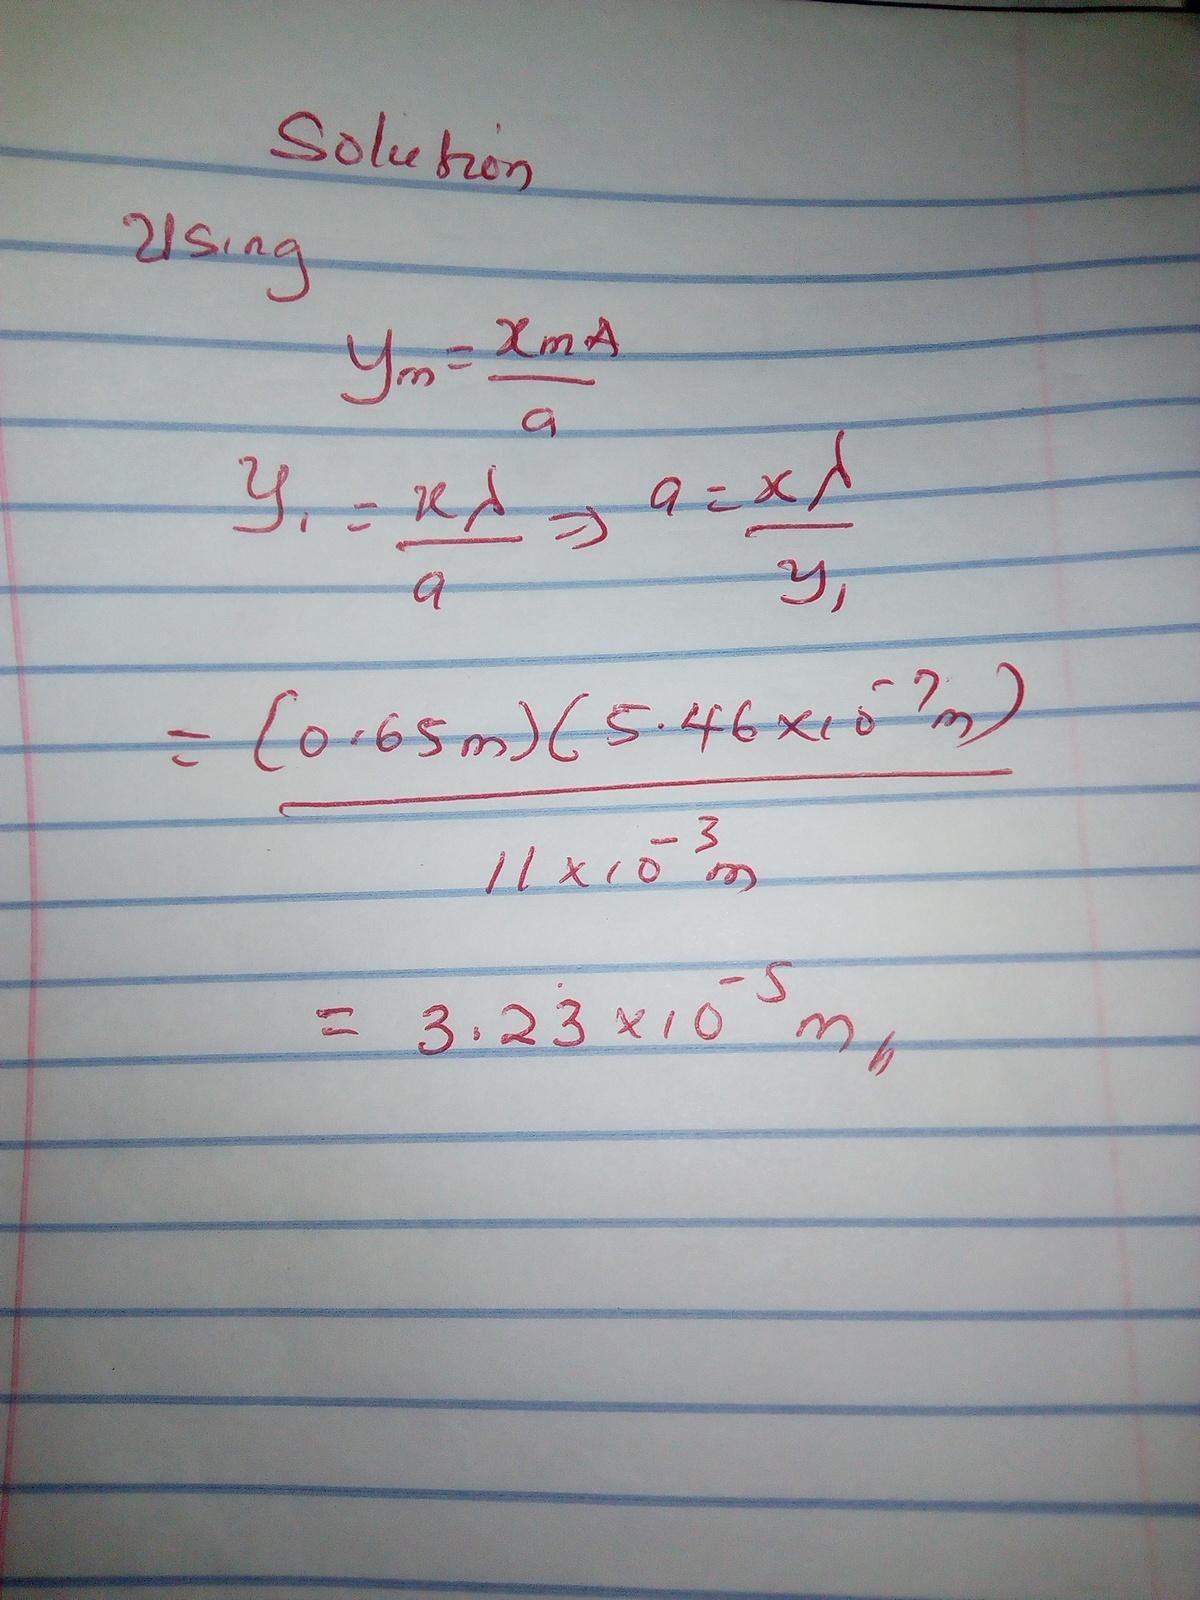 Solution
Using
yₘ = xmλ / a
y₁ = xλ / a ⇒ a = xλ / y₁
= (0.65m)(5.46×10⁻⁷m) / 11×10⁻³m
= 3.23×10⁻⁵m